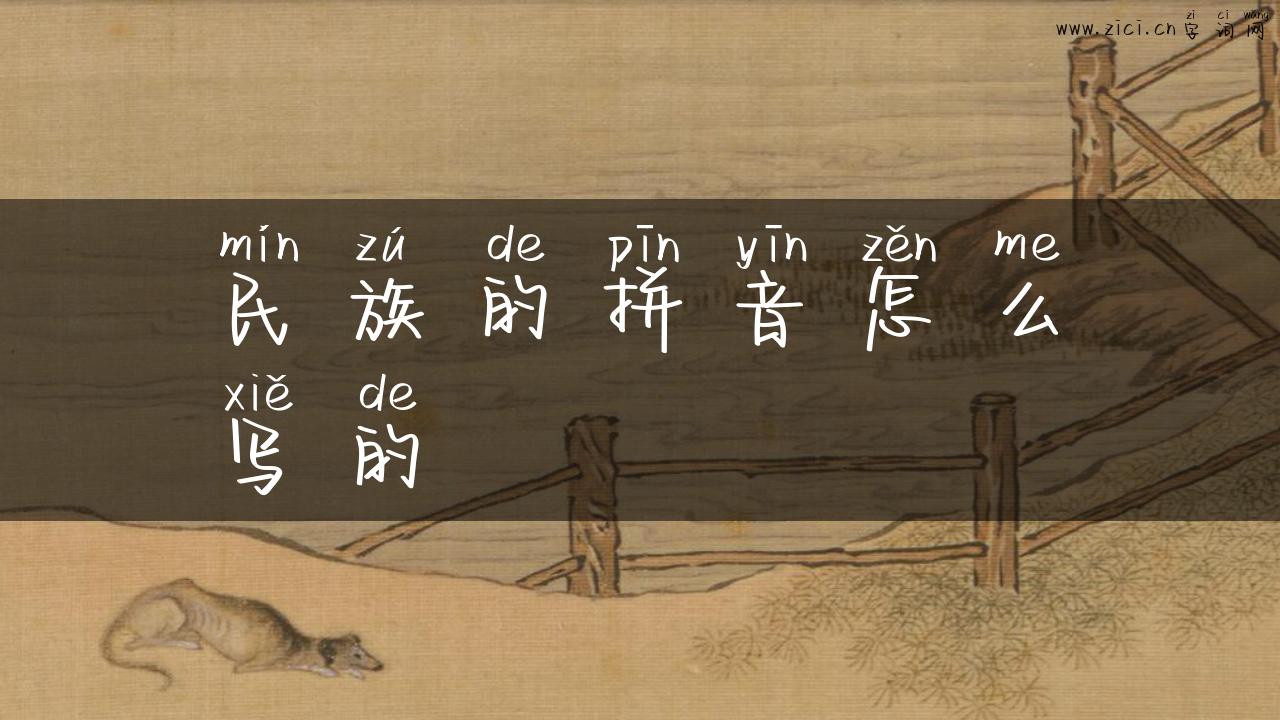 zi ci wang
www.zici.cn 字词网
mín zú de pīn yīn zěn me
民族的拼音怎么
xiě de
写的